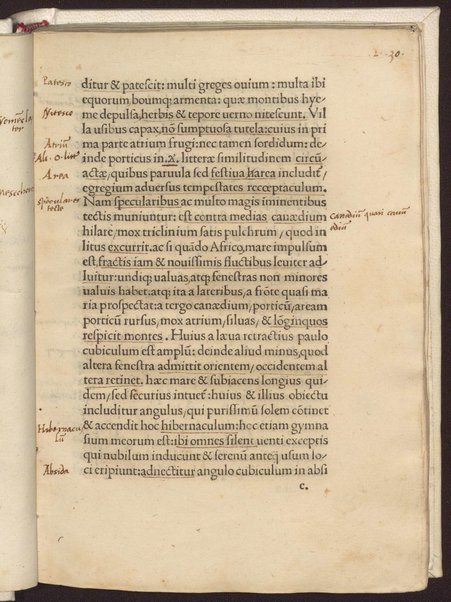 2 30.
Patesco
ditur & patescit: multi greges ouium: multa ibi
equorum, boumq; armenta: quæ montibus hye
Nitesco
me depulsa, herbis & tepore uerno nitescunt. Vil
la usibus capax, nõ sumptuosa tutela: cuius in pri
Atriũ
ma parte atrium frugi: nec tamen sordidum: de
inde porticus in .A. litteræ similitudinem circũ
Area
actæ, quibus paruula sed festiua harea includit,
egregium aduersus tempestates receptaculum.
Nam specularibus ac multo magis iminentibus
tectis muniuntur: est contra medias cauædium
hilare, mox triclinium satis pulchrum, quod in
litus excurrit. ac si quãdo Africo, mare impulsum
est, fractis iam & nouissimis fluctibus leuiter ad
luitur: undiq; ualuas, atq; fenestras non minores
ualuis habet. atq; ita a lateribus, a frõte quasi ma
ria prospectat: a tergo cauædium, porticũ, aream
porticũ rursus, mox atrium, siluas, & lõginquos
respicit montes. Huius a læua retractius paulo
cubiculum est amplũ: deinde aliud minus, quod
altera fenestra admittit orientem, occidentem al
tera retinet. hæc mare & subiacens longius qui
dem, sed securius intuet: huius & illius obiectu
includitur angulus, qui purissimũ solem cõtinet
Hibernacu
lũ
& accendit hoc hibernaculum: hoc etiam gymna
sium meorum est: ibi omnes silent uenti exceptis
qui nubilum inducunt & serenũ anteq; usum lo
Absida
ci eripiunt: adnectitur angulo cubiculum in absi
c.